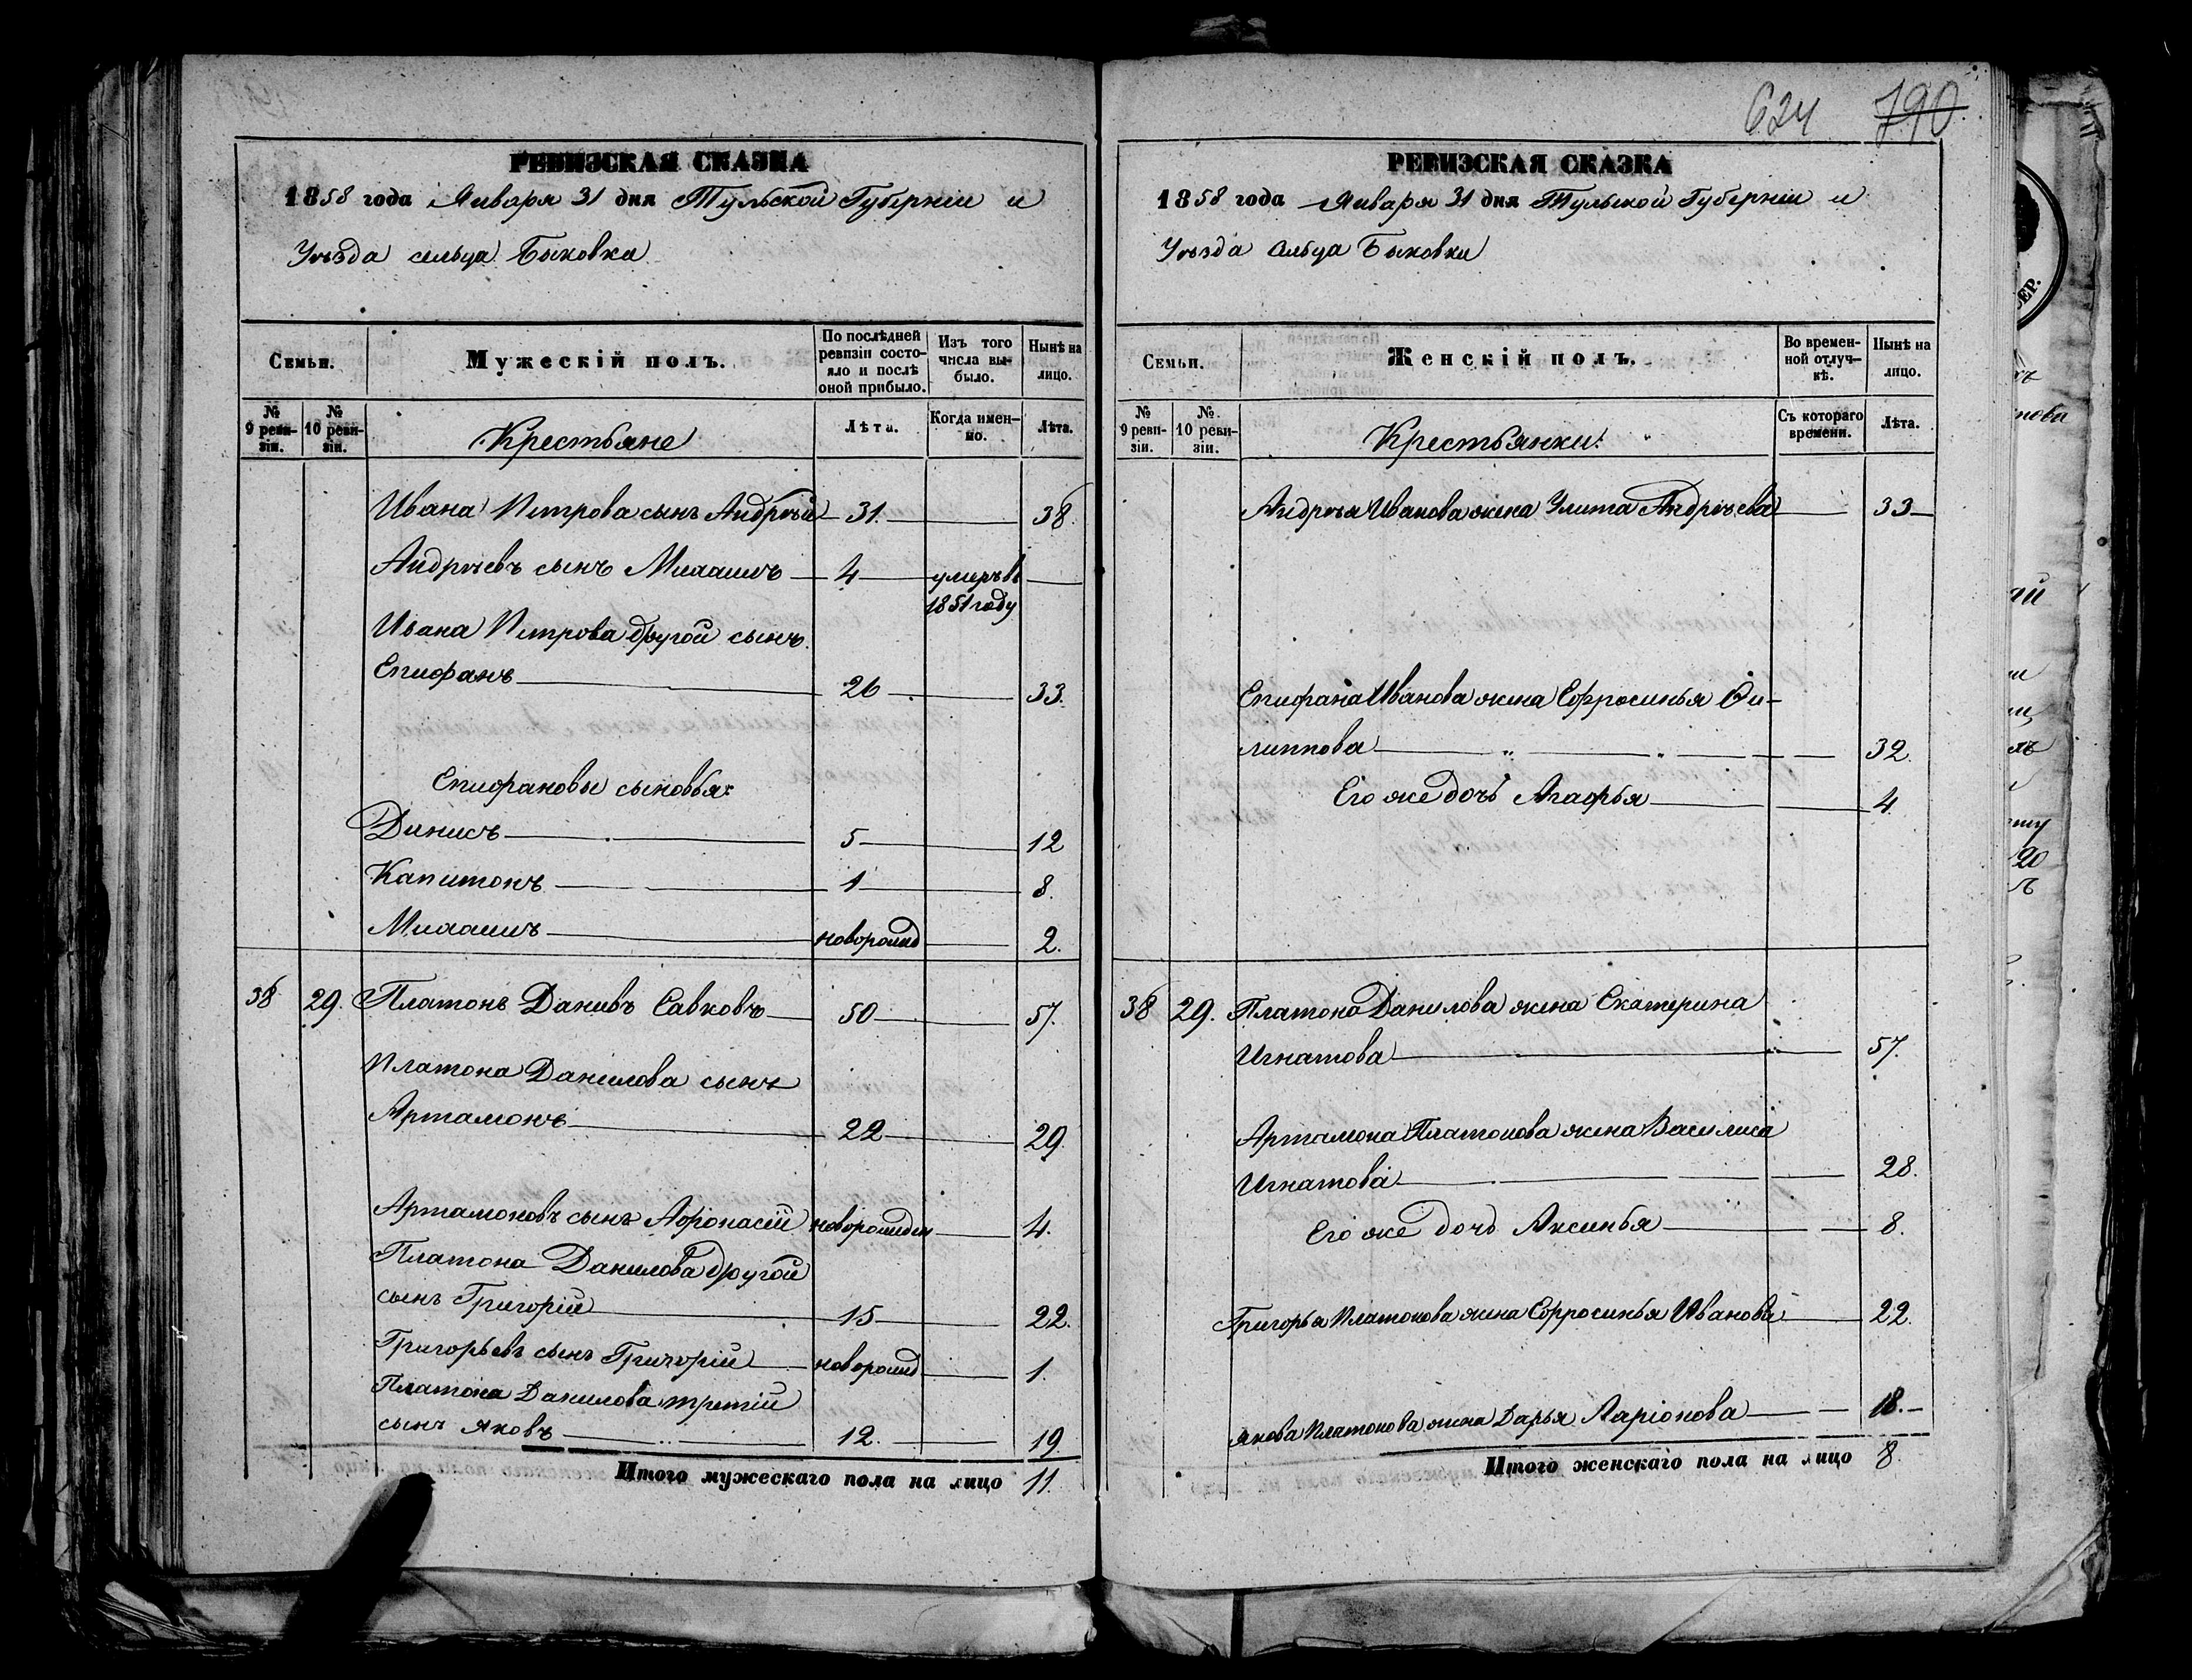 РЕВИЗСКАЯ СКАЗКА
1858 года Января 31 дня Тульской Губерніи и
Уѣзда сельца Быковка
Семьи.
Мужескій полъ.
По послѣдней ревизіи состояло и послѣ оной прибыло.
Изъ того числа выбыло.
Нынѣ на лицо.
№ 9 ревизіи.
№ 10 ревизіи.
Крестьяне
Лѣта.
Когда именно.
Лѣта.
Ивана Петрова сынъ Андрѣй 31. 38.
Андрѣевъ сынъ Михаилъ 4 умеръ въ
1851 году
Ивана Петрова другой сынъ
Епифанъ 26 33.
Епифановы сыновья:
Динисъ 5 12
Капитонъ 1 8.
Михаилъ новорожд 2.
38 29. Платонъ Данивъ Савковъ 50 57.
Платона Данилова сынъ
Артамонъ 22 29.
Артамоновъ сынъ Афонасій новорожден 4.
Платона Данилова другой
сынъ Григорій 15 22.
Григорьевъ сынъ Григорій новорожд 1.
Платона Данилова третій
сынъ Яковъ 12. 19
Итого мужескаго пола на лицо 11.
624 790.
РЕВИЗСКАЯ СКАЗКА
1858 года Января 31 дня Тульской Губерніи и
Уѣзда Сельца Быковки
Семьи.
Женскій полъ.
Во временной отлучкѣ.
Нынѣ на лицо.
№ 9 ревизіи.
№ 10 ревизіи.
Крестьянки.
Съ котораго времени.
Лѣта.
Андрѣя Иванова жена Улита Андрѣева 33
Епифана Иванова жена Ефросинья Фи-
липпова 32.
Его же дочь Агафья 4.
38 29. Платона Данилова жена Екатерина
Игнатова 57.
Артамона Платонова жена Василиса
Игнатова 28.
Его же дочь Аксинья 8.
Григорья Платонова жена Ефросинья Иванова 22.
Якова Платонова жена Дарья Ларіонова 18.
Итого женскаго пола на лицо 8.